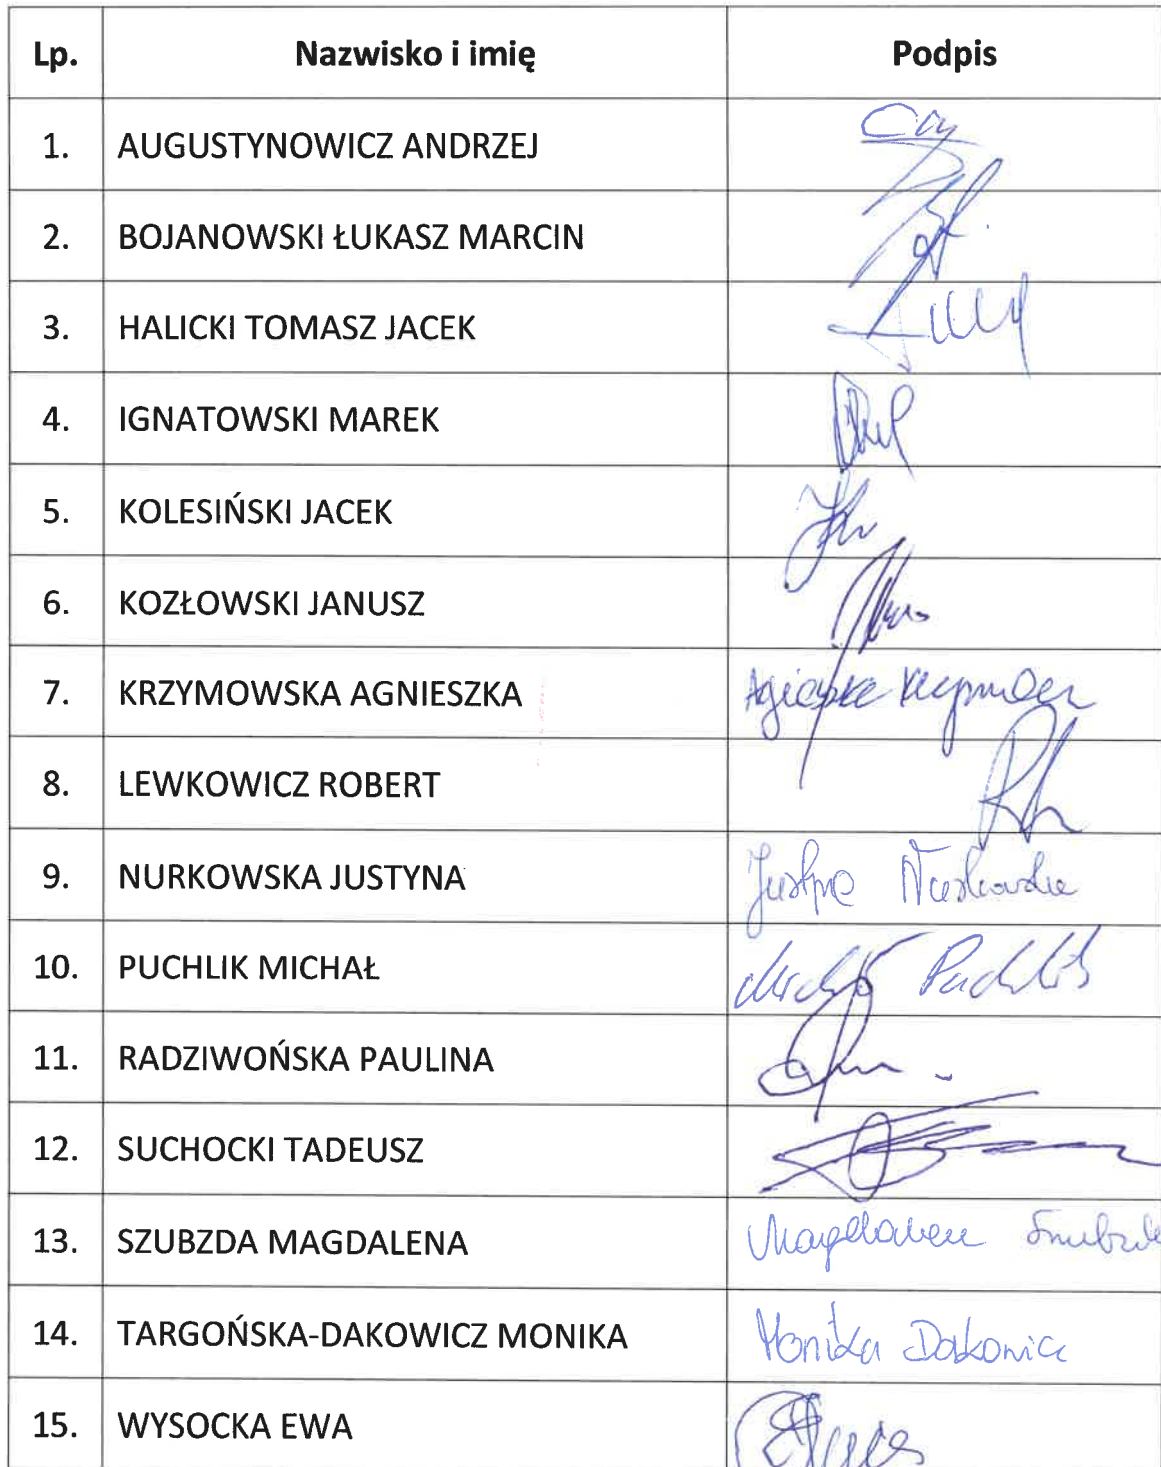 Lp. Nazwisko i imię Podpis
1. AUGUSTYNOWICZ ANDRZEJ
2. BOJANOWSKI ŁUKASZ MARCIN
3. HALICKI TOMASZ JACEK
4. IGNATOWSKI MAREK
5. KOLESIŃSKI JACEK
6. KOZŁOWSKI JANUSZ
7. KRZYMOWSKA AGNIESZKA
8. LEWKOWICZ ROBERT
9. NURKOWSKA JUSTYNA Justyna Nurkowska
10. PUCHLIK MICHAŁ Michał Puchlik
11. RADZIWOŃSKA PAULINA
12. SUCHOCKI TADEUSZ
13. SZUBZDA MAGDALENA Magdalena Szubzda
14. TARGOŃSKA-DAKOWICZ MONIKA Monika Dakowicz
15. WYSOCKA EWA